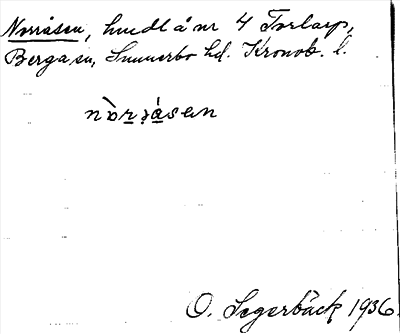 Norråsen, hmdl å nr 4 Torlarp,
Berga sn, Sunnerbo hd. Kronob. l.
nòrɹásen
O. Segerbäck 1936.